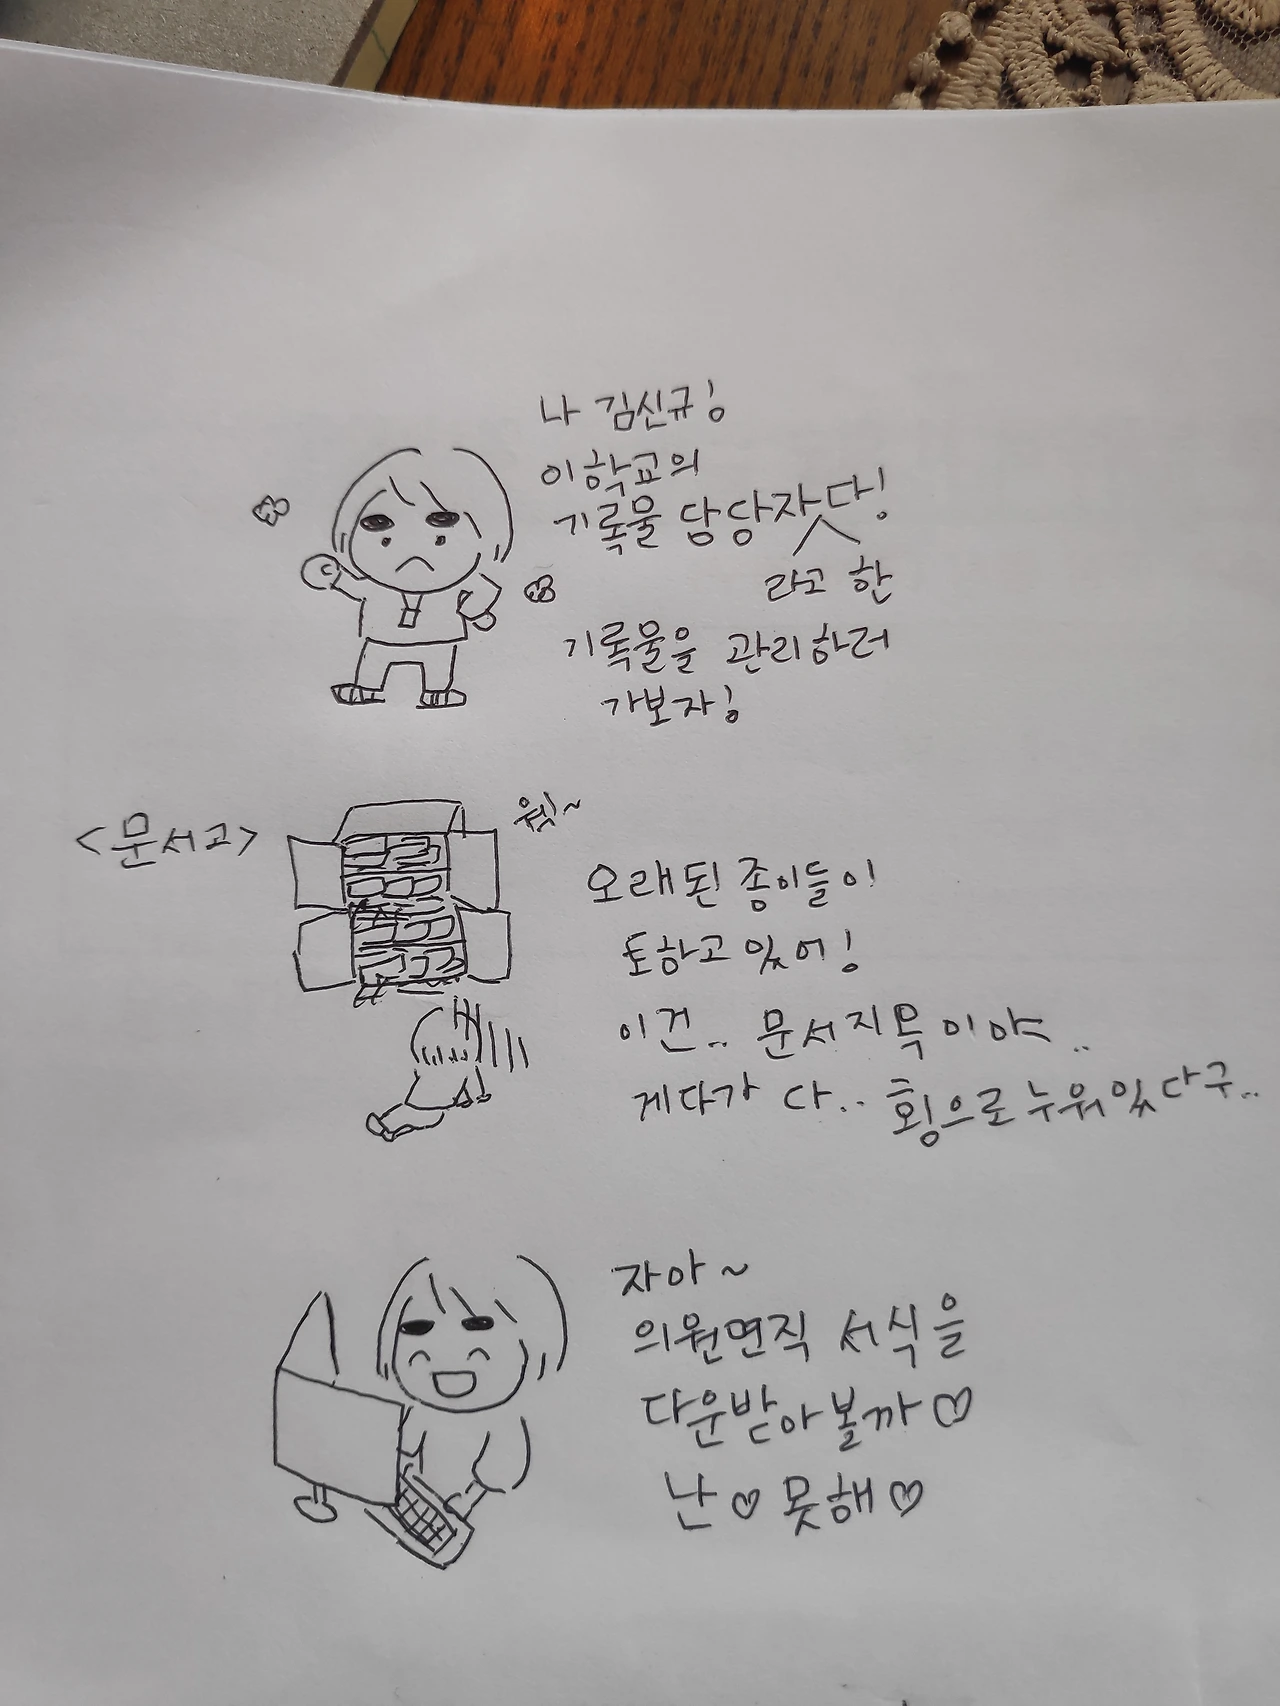 나 김신규!
이학교의
기록물 담당자다!
라고 한
기록물을 관리하러
가보자!
<문서고>
웩~
오래된 종이들이
토하고 있어!
이건.. 문서지옥이야..
게다가 다.. 횡으로 누워있다구..
자아~
의원면직 서식을
다운받아볼까♡
난♡못해♡